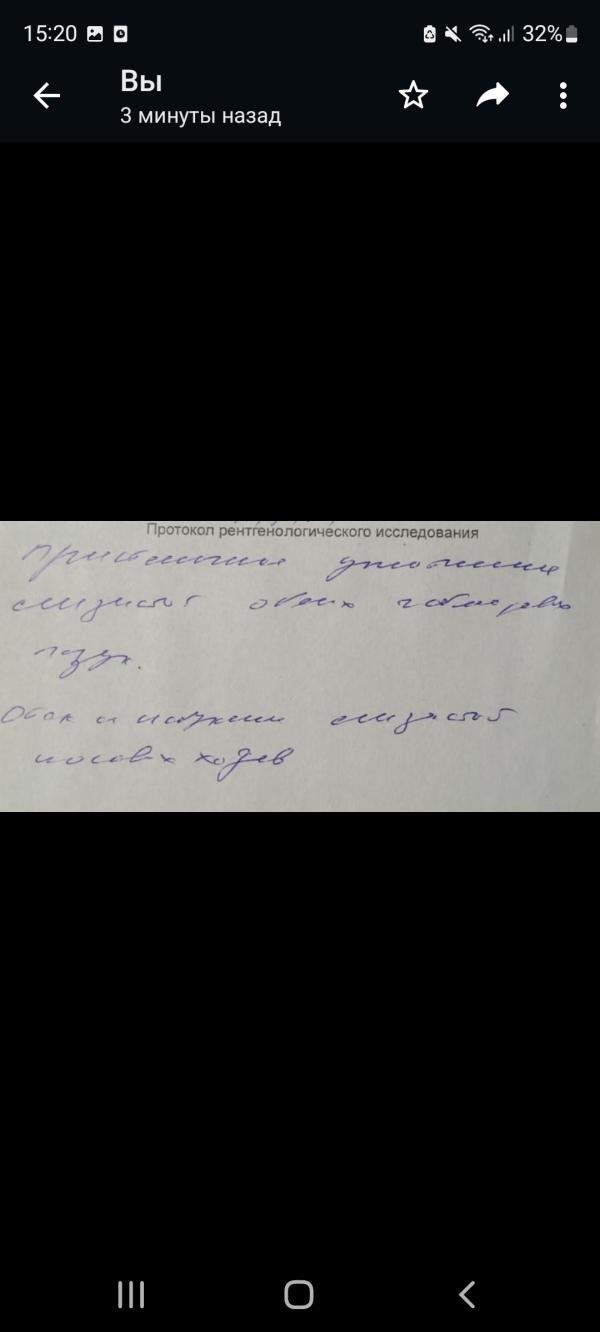 15:20 32%
Вы
3 минуты назад
Протокол рентгенологического исследования
Пристеночные утолщения
слизистой обеих гайморовых
пазух.
Отек и слизистой
носовых ходов